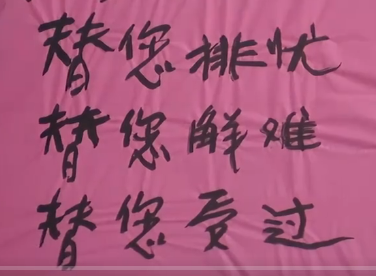 替您排忧
替您解难
替您受过